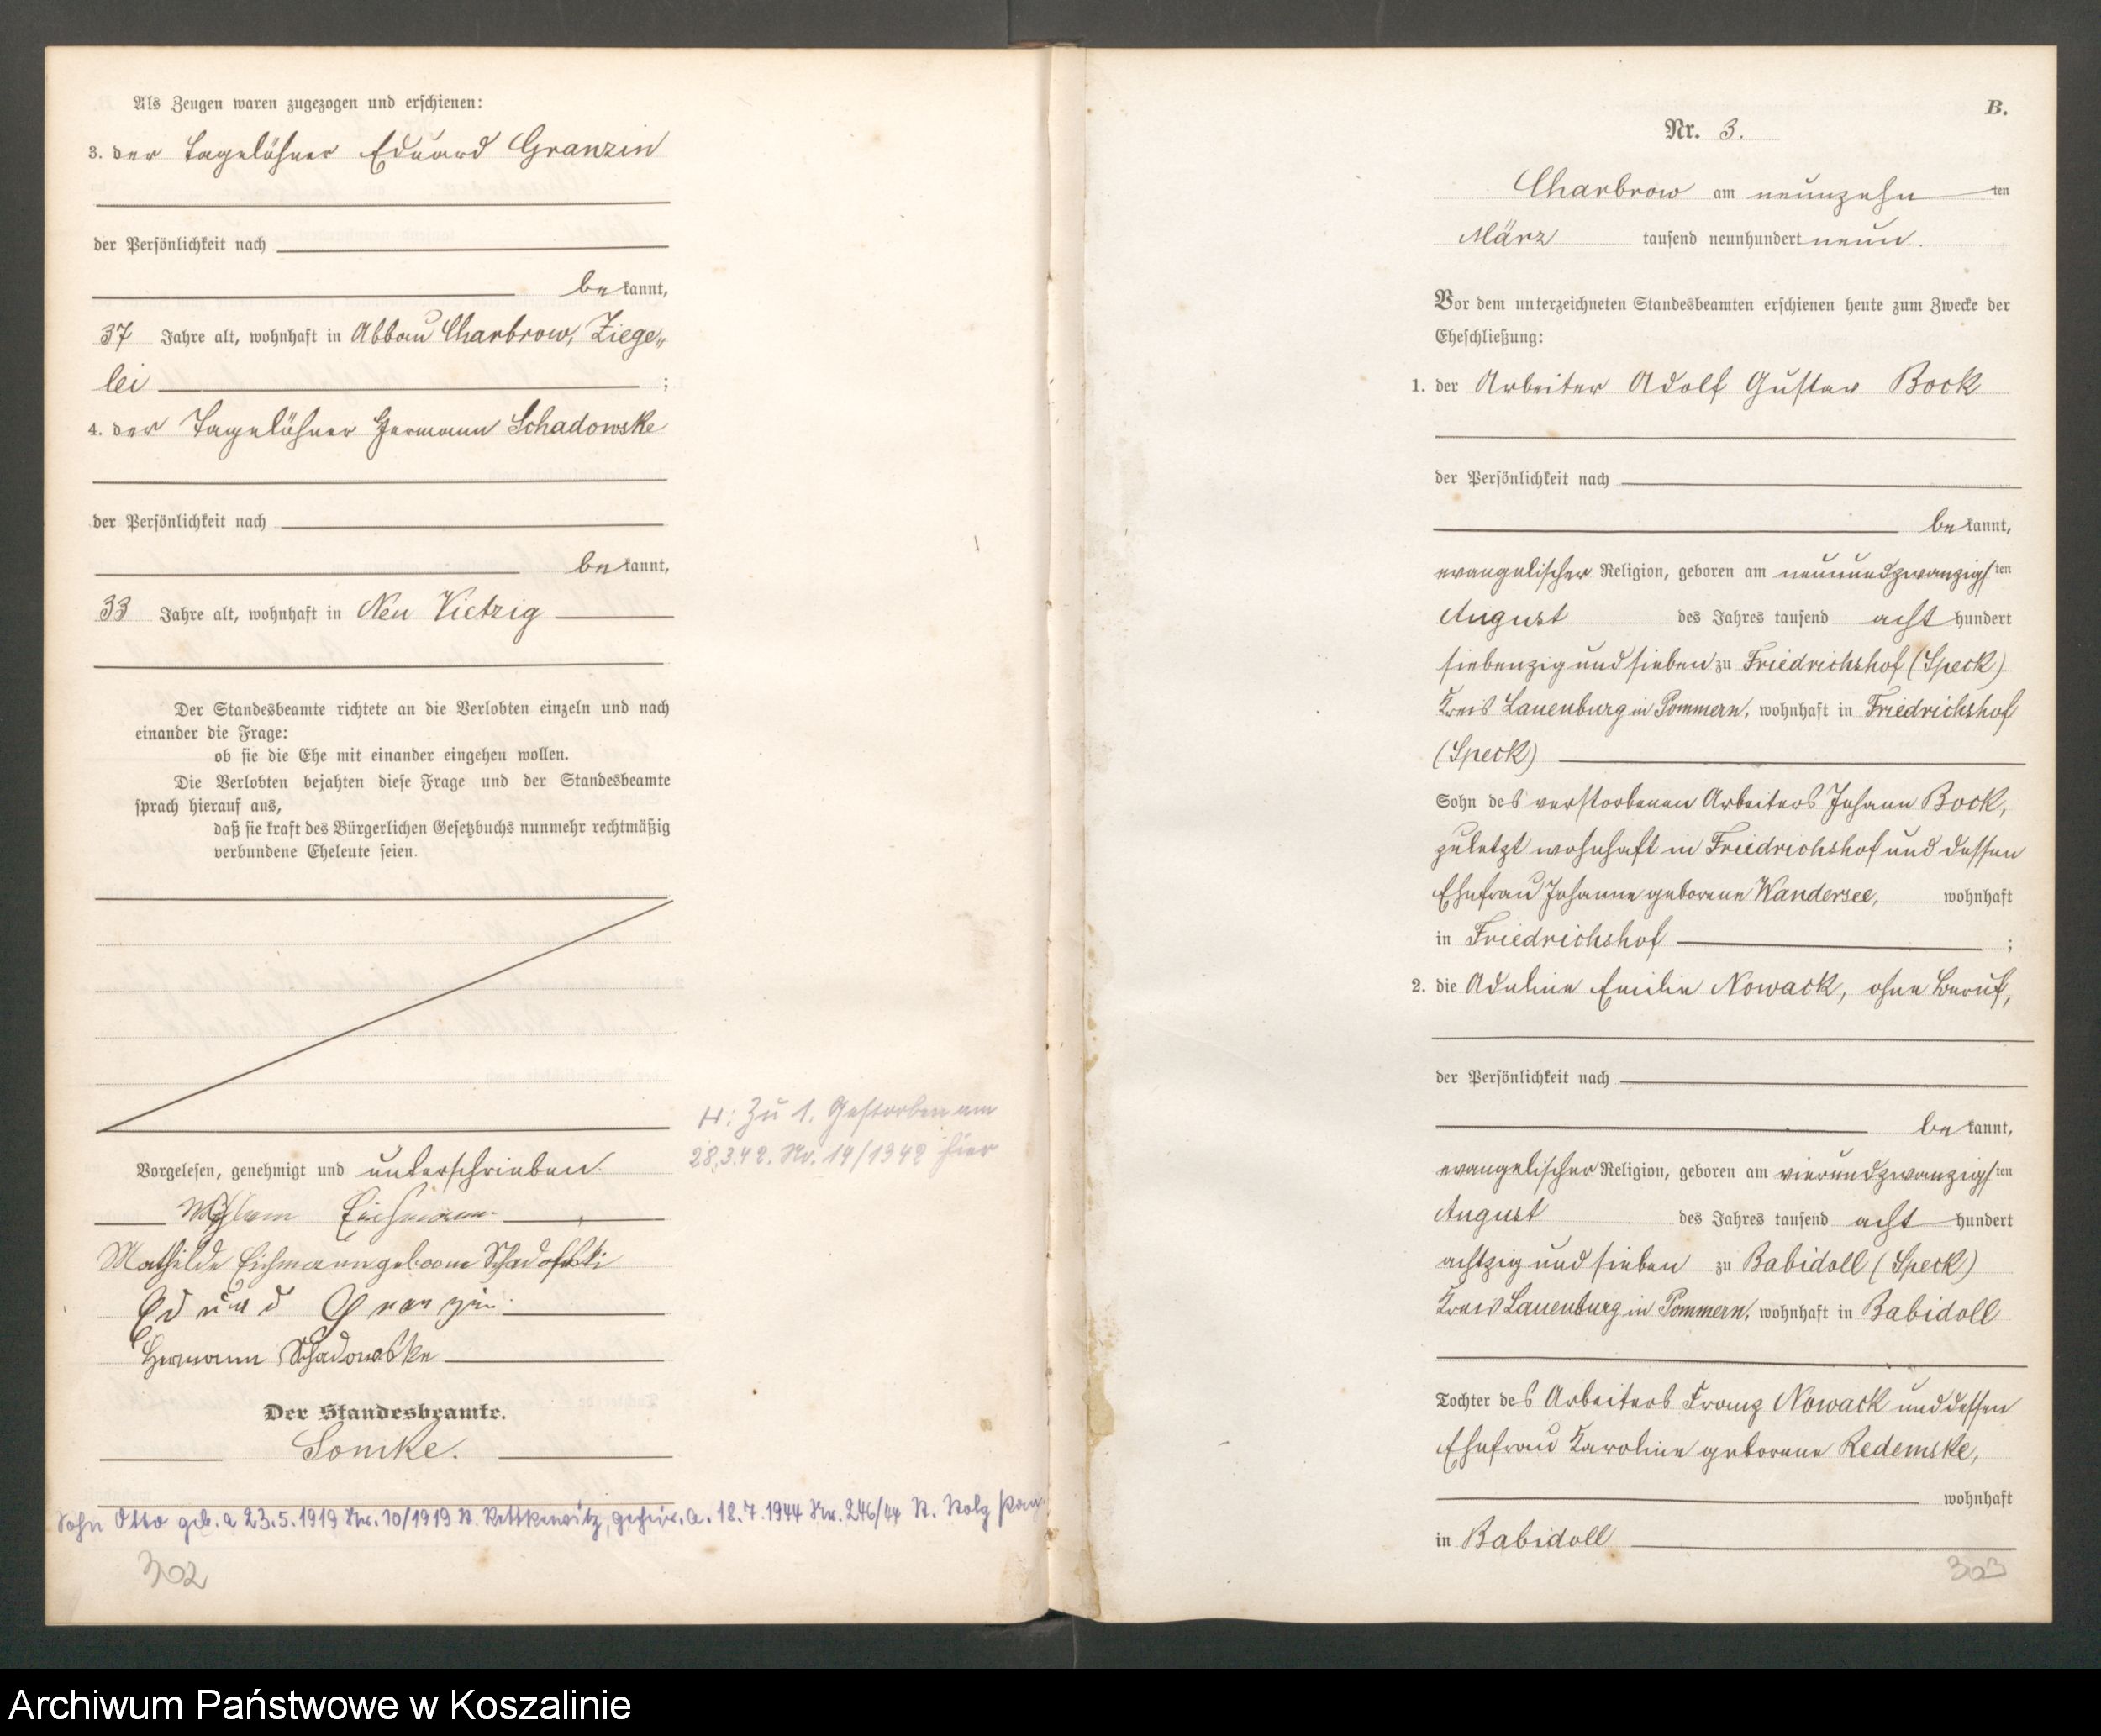 Als Zeugen waren zugezogen und erschienen:
3. der Tagelöhner Eduard Granzin
der Persönlichkeit nach
be kannt,
37 Jahre alt, wohnhaft in Abbau Charbrow, Ziege„
lei ;
4. der Tagelöhner Hermann Schadowske
der Persönlichkeit nach
be kannt,
33 Jahre alt, wohnhaft in Neu Vietzig
Der Standesbeamte richtete an die Verlobten einzeln und nach
einander die Frage:
ob sie die Ehe mit einander eingehen wollen.
Die Verlobten bejahten diese Frage und der Standesbeamte
sprach hierauf aus,
daß sie kraft des Bürgerlichen Gesetzbuchs nunmehr rechtmäßig
verbundene Eheleute seien.
H: Zu 1. Gestorben am
28.3.42. Nr. 14/1942 hier
Vorgelesen, genehmigt und unterschrieben.
Eichmann
Mathilde Eichmann geborne
Eduad Granzin
Hermann Schadowske
Der Standesbeamte.
Lomke.
Sohn Otto geb. a 23.5.1919 Nr. 10/1919 St. Rettkewitz, geheir. a. 18.7.1944 Nr. 246/44 St. Stolp Pom.
302
B.
Nr. 3.
Charbrow am neunzehn ten
März tausend neunhundert neun.
Vor dem unterzeichneten Standesbeamten erschienen heute zum Zwecke der
Eheschließung:
1. der Arbeiter Adolf Gustav Bock
der Persönlichkeit nach
be kannt,
evangelischer Religion, geboren am neunundzwanzigsten
August des Jahres tausend acht hundert
siebenzig und sieben zu Friedrichshof (Speck)
Kreis Lauenburg in Pommern, wohnhaft in Friedrichshof
(Speck)
Sohn des verstorbenen Arbeiters Johann Bock,
zuletzt wohnhaft in Friedrichshof und dessen
Ehefrau Johanne geborene Wandersee, wohnhaft
in Friedrichshof ;
2. die Adeline Emilie Nowack, ohne Beruf,
der Persönlichkeit nach
be kannt,
evangelischer Religion, geboren am vierundzwanzigsten
August des Jahres tausend acht hundert
achtzig und sieben zu Babidoll (Speck)
Kreis Lauenburg in Pommern, wohnhaft in Babidoll
Tochter des Arbeiters Franz Nowack und dessen
Ehefrau Karoline geborene Redemske,
wohnhaft
in Babidoll
303
Archiwum Państwowe w Koszalinie